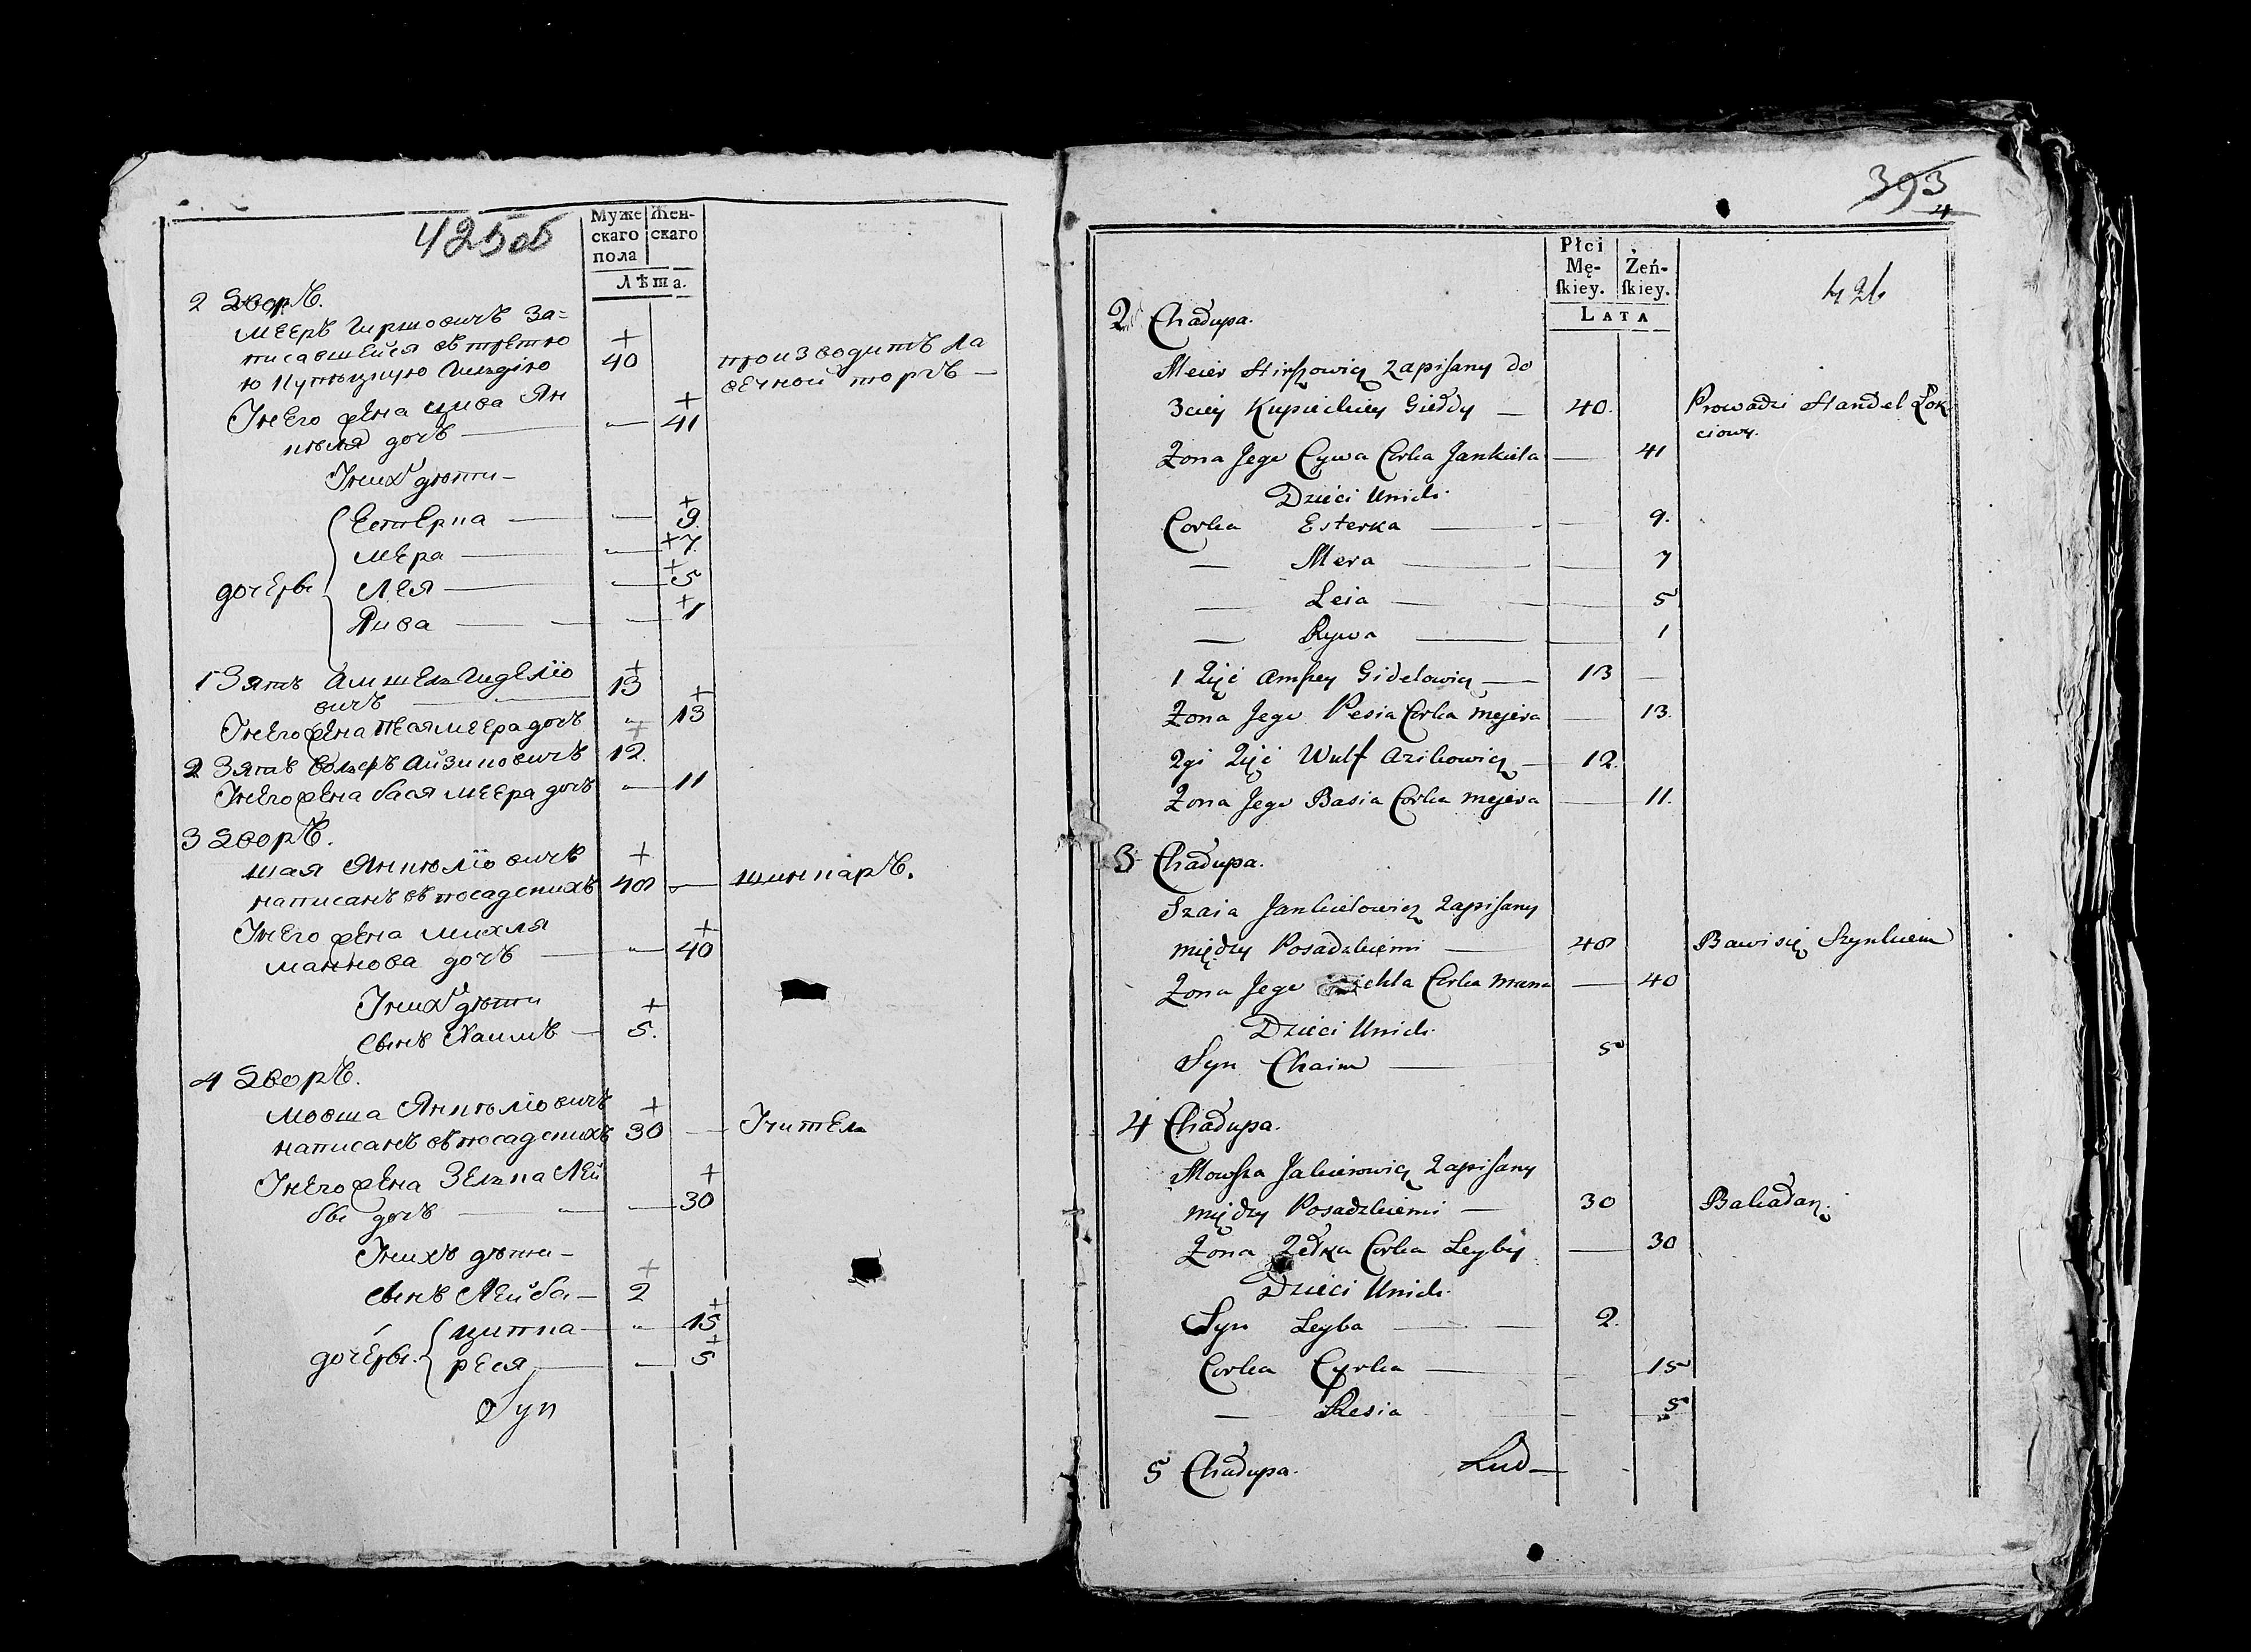 425 об
Муже Жен-
скаго скаго
пола
Лѣта.
2 Дворъ.
Мееръ Гиршовичъ за-
писавшейся въ третю 40 производитъ ла
ю купецкую Гилдiю вечной торгъ —
У него жена Цива Ян
кѣля дочъ — 41
У них дѣти -
Естерка — 9.
Мера — 7.
дочеры Лея — 5
Рива — 1
1 Зять Амшель Гиделiо
вичъ — 13
У него жена Песя Меера дочъ 13
2 Зять Вольфъ Айзиковичъ 12.
У него жена Бася Меера дочъ 11
3 Дворъ.
Шая Янкѣлiовичъ
написанъ въ посадскихъ 40 — шинкаръ.
У него жена Михля
Маннова дочъ — 40
У них дѣти
Сынъ Хаимъ — 5.
4 Дворъ.
Мовша Янкѣлiовичъ
написанъ въ посадскихъ 30 — Учитель
У него жена Зелка Лей
бы дочъ — 30
У нихъ дѣти -
сынъ Лейба — 2
Ципка — 15
дочеры. Реся — 5
Syn
393
4
426
Płci Żeń-
Mę- skiey.
skiey.
LATA
2 Chałupa.
Meier Hirszowicz zapisany do
3ciey Kupieckiey Gieldy — 40. Prowadzi Handel Łok-
ciowy.
Żona Jego Cywa Corka Jankiela — 41
Dzieci Unich.
Corka Esterka — 9.
— Mera — 7
— Leia — 5
— Rywa — 1
1 Zięć Amszey Gidelowicz — 13 —
Żona Jego Pesia Corka Mejera — 13.
2gi Zięć Wulf Azikowicz — 12.
Żona Jego Basia Corka Mejera — 11.
3 Chałupa.
Szaia Jankielowicz zapisany
między Posadzkiemi — 40 Bawi się Szynkiem
Żona Jego Michla Corka Mana — 40
Dzieci Unich.
Syn Chaim — 5
4 Chałupa.
Mowsza Jakierowicz zapisany
między Posadzkiemi — 30 Bakałarz.
Żona Zełka Corka Leyby — 30
Dzieci Unich.
Syn Leyba — 2.
Corka Cyrka — 15
— Resia — 5
5 Chałupa. Lud —